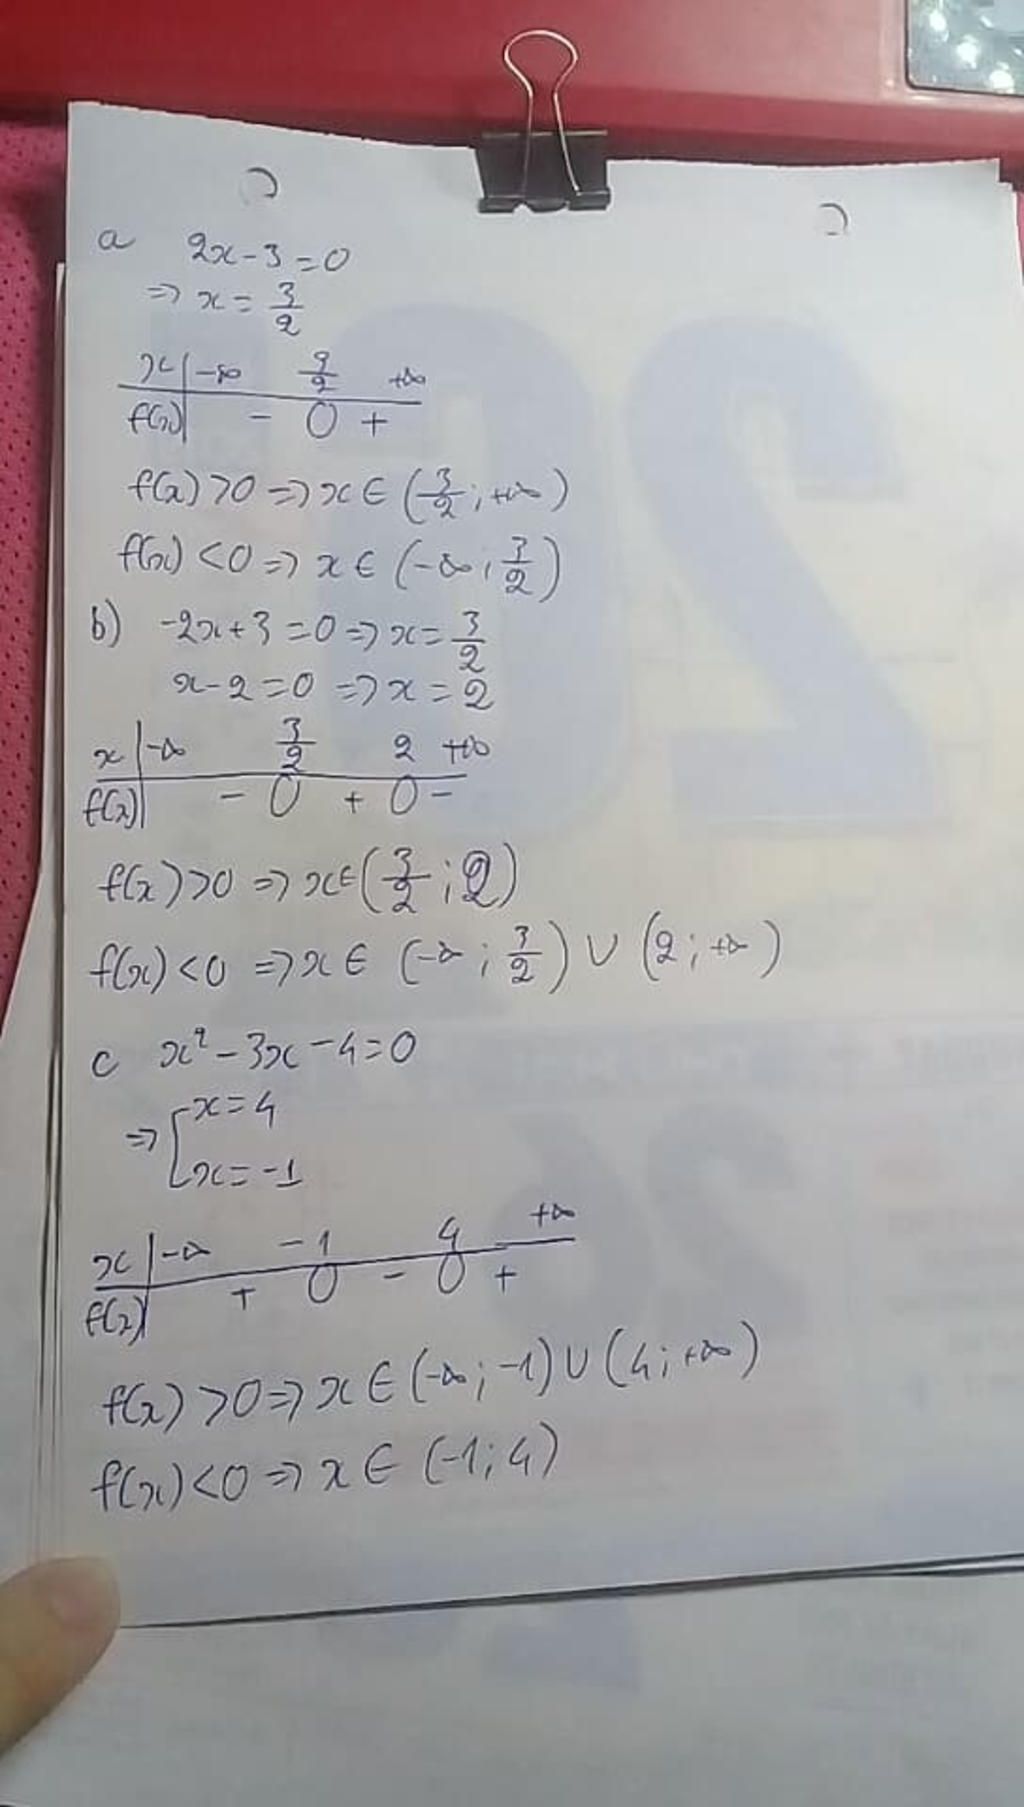 a 2x-3=0
=> x = 3/2
x | -∞ 3/2 +∞
f(x) | - 0 +
f(x) >0 => x ∈ (3/2 ; +∞)
f(x) <0 => x ∈ (-∞ ; 3/2)
b) -2x+3=0 => x = 3/2
x-2=0 => x=2
x | -∞ 3/2 2 +∞
f(x) | - 0 + 0 -
f(x) >0 => x ∈ (3/2 ; 2)
f(x) <0 => x ∈ (-∞ ; 3/2) ∪ (2 ; +∞)
c x² - 3x - 4 = 0
=> [ x = 4
x = -1
x | -∞ -1 4 +∞
f(x) | + 0 - 0 +
f(x) >0 => x ∈ (-∞ ; -1) ∪ (4 ; +∞)
f(x) <0 => x ∈ (-1 ; 4)